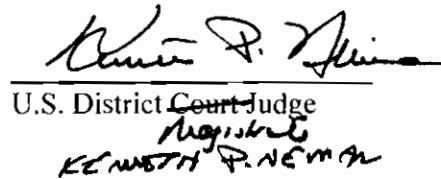 Kenneth P. Neiman
U.S. District Court Judge
Magistrate
KENNETH P. NEIMAN